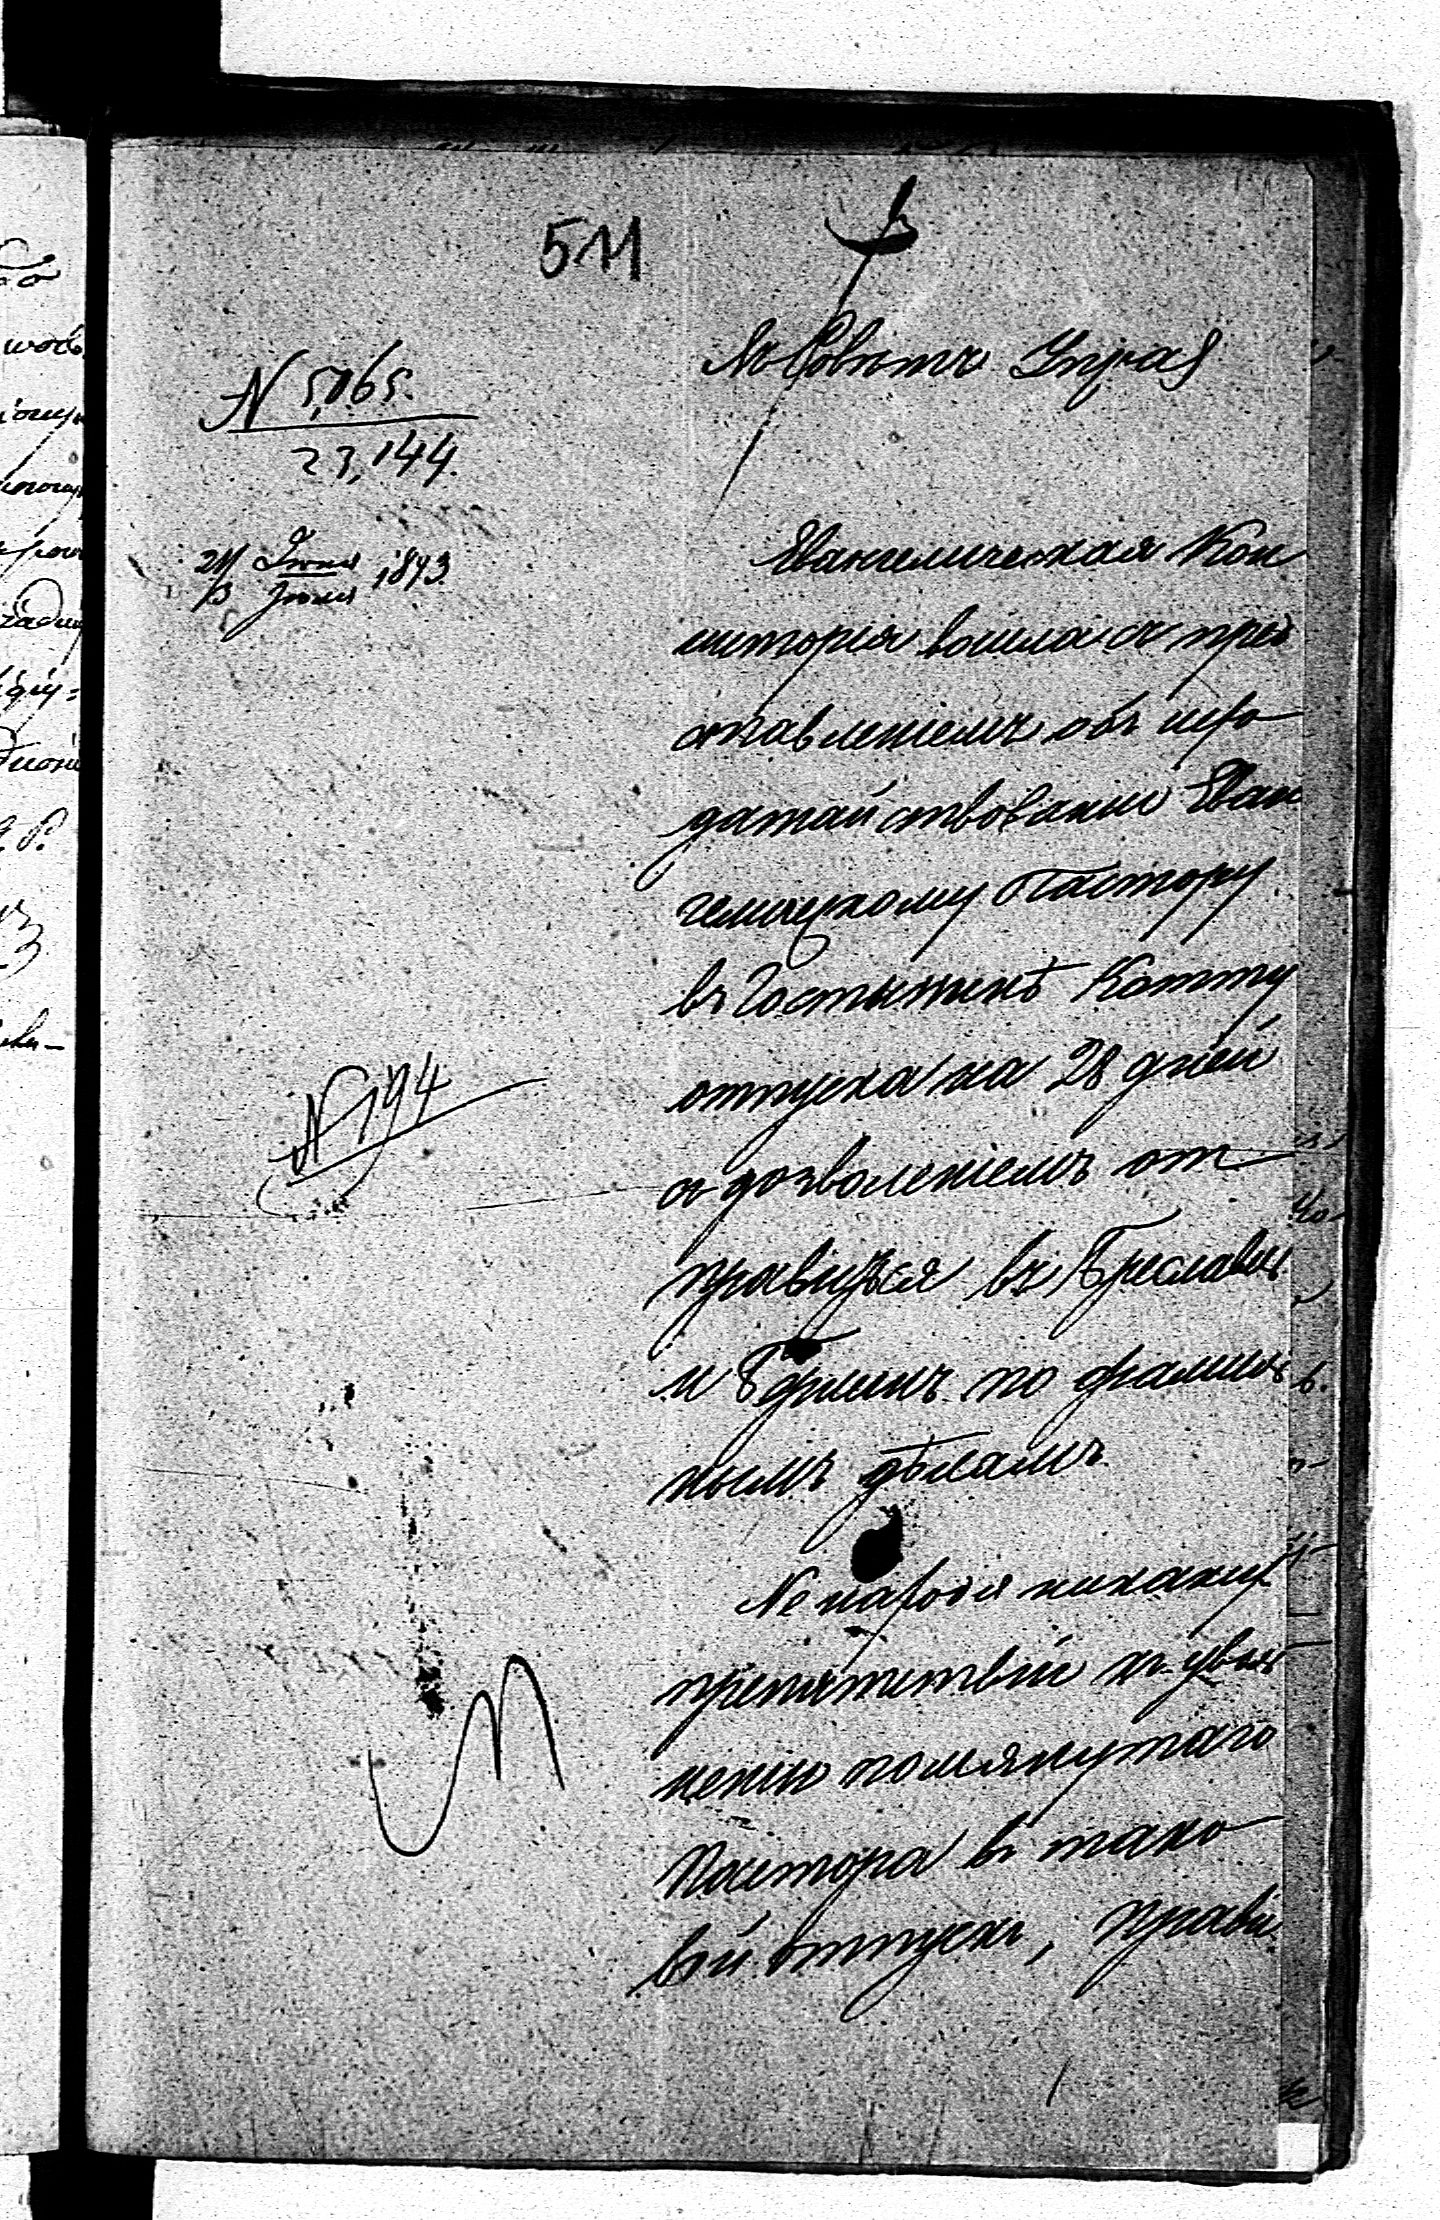 511
N 5,065.
23,144.
21/3 Іюня/Іюля 1843
Въ Совѣтъ Управ
Евангелическая Кон
систорія вошла съ пред
ставленіемъ объ исхо
датайствованіи Еван
гелическому Пастору
въ Гостынинѣ
отпуска на 28 дней
съ дозволеніемъ от
правиться въ Бреславль
и Берлинъ по фамиль
нымъ дѣламъ.
Не находя никакихъ
препятствій къ уволь
ненію помянутаго
Пастора въ тако
вый отпускъ, Прави
N 194